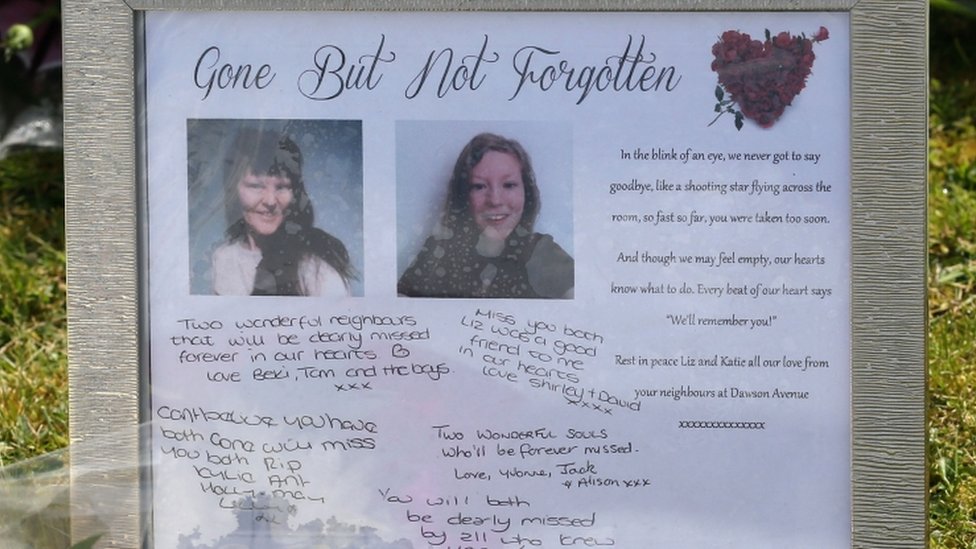 Gone But Not Forgotten
In the blink of an eye, we never got to say
goodbye, like a shooting star flying across the
room, so fast so far, you were taken too soon.
And though we may feel empty, our hearts
know what to do. Every beat of our heart says
"We'll remember you!"
Rest in peace Liz and Katie all our love from
your neighbours at Dawson Avenue
xxxxxxxxxxxxxx
Two wonderful neighbours
that will be dearly missed
forever in our hearts.
Love Beki, Tom and the boys.
xxx
Miss you both
Liz was a good
friend to me
in our hearts
love Shirley + David
xxxx
Can't believe you have
both gone will miss
you both RIP
Kylie Ant
Holly-may
Two wonderful souls
who'll be forever missed.
Love, Yvonne, Jack
& Alison xxx
You will both
be dearly missed
by all who knew